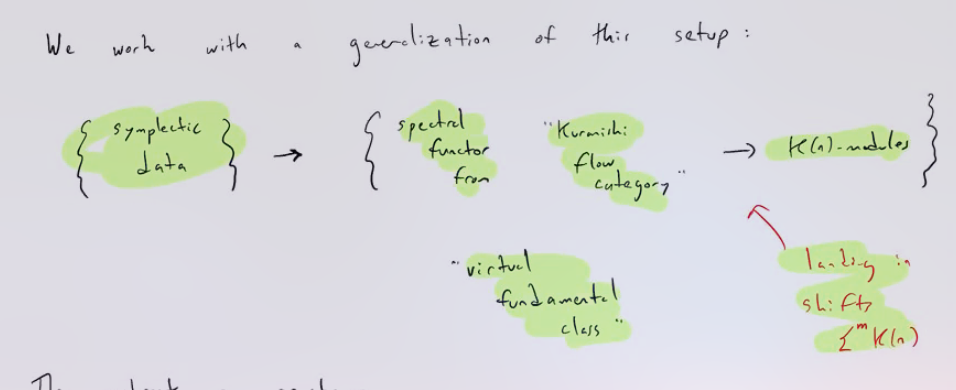 We work with a generalization of this setup :
{ symplectic data } → { spectral functor from "Kuranishi flow category" → K(n)-modules }
"virtual fundamental class"
landing in shifts Σ^m K(n)